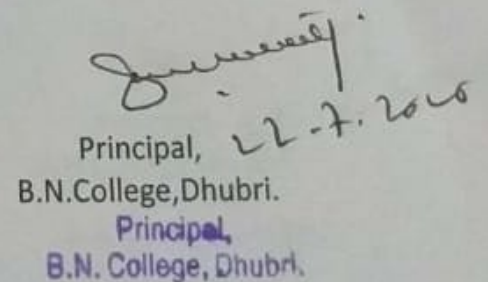 Principal, 22-7.2020
B.N.College,Dhubri.
Principal,
B.N. College, Dhubri.